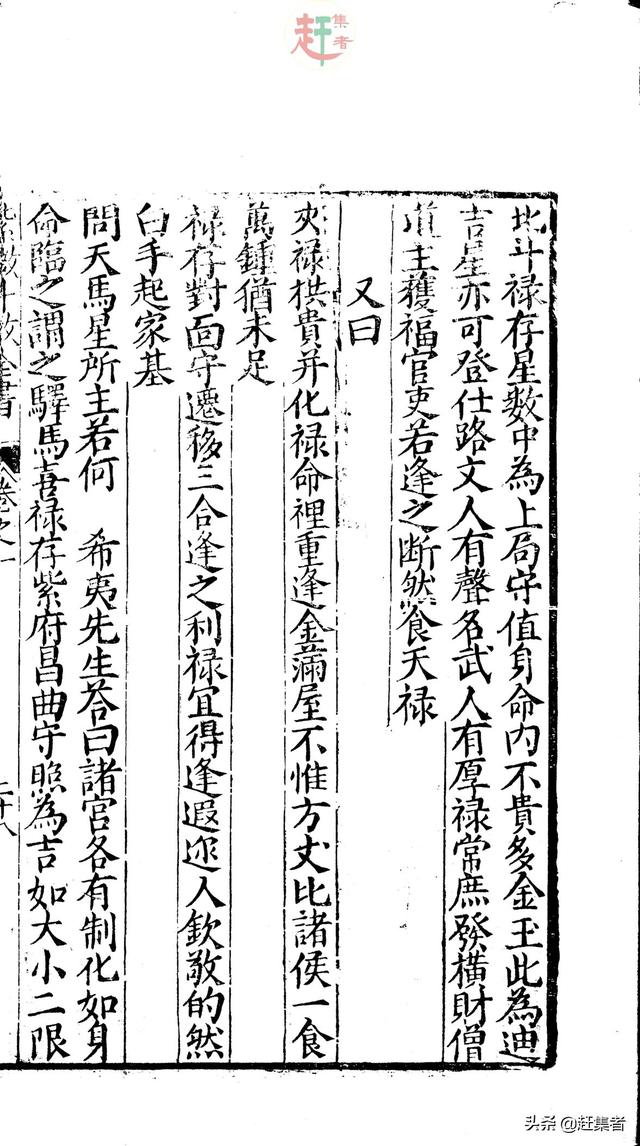 赶集者
北斗禄存星數中為上局守值身命内不貴多金玉此為迪
吉星亦可登仕路文人有聲名武人有厚禄常庶發橫財僧
道主獲福官吏若逢之断然食天禄
又曰
夾禄拱貴并化禄命裡重逢金滿屋不惟方丈比諸侯一食
萬鍾猶未足
禄存對面守遷移三合逢之利禄宜得逢遐迩人欽敬的然
白手起家基
問天馬星所主若何 希夷先生答曰諸宮各有制化如身
命臨之謂之驛馬喜禄存紫府昌曲守照為吉如大小二限
數斗数全書 卷之一 二十八
头条 @赶集者